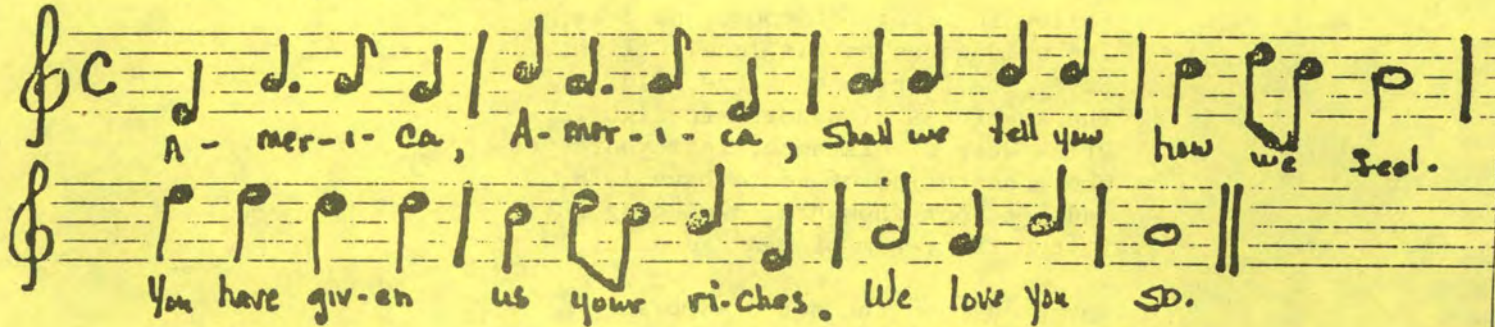 A - mer - i - ca, A - mer - i - ca, Shall we tell you how we feel.
You have giv - en us your ri - ches. We love you so.